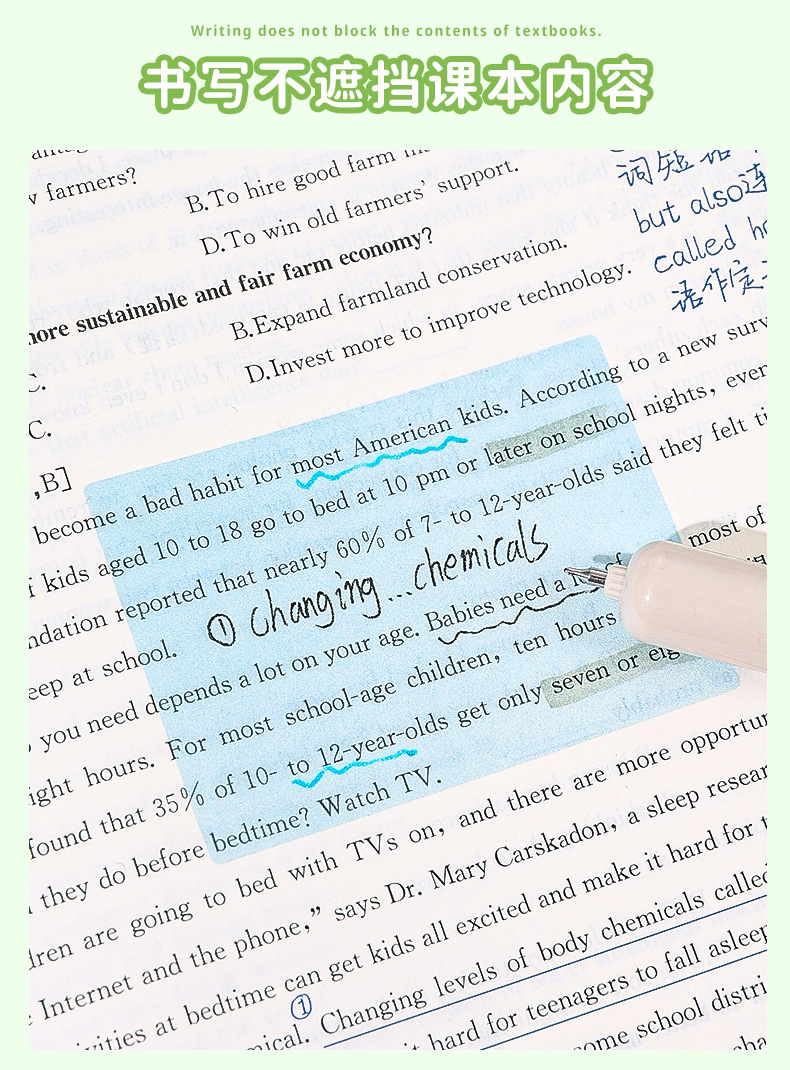 Writing does not block the contents of textbooks.
书写不遮挡课本内容
farmers?
B.To hire good farm
D.To win old farmers' support.
more sustainable and fair farm economy?
B.Expand farmland conservation.
D.Invest more to improve technology.
C.
C.
,B]
词短语
but also
called
语作定
become a bad habit for most American kids. According to a new
kids aged 10 to 18 go to bed at 10 pm or later on school nights, even
reported that nearly 60% of 7- to 12-year-olds said they felt
at school.
① changing...chemicals
most of
you need depends a lot on your age. Babies need a
hours. For most school-age children, ten hours
found that 35% of 10- to 12-year-olds get only seven or
they do before bedtime? Watch TV.
are going to bed with TVs on, and there are more
Internet and the phone,” says Dr. Mary Carskadon, a sleep
at bedtime can get kids all excited and make it hard for
① Changing levels of body chemicals called
hard for teenagers to fall asleep
some school